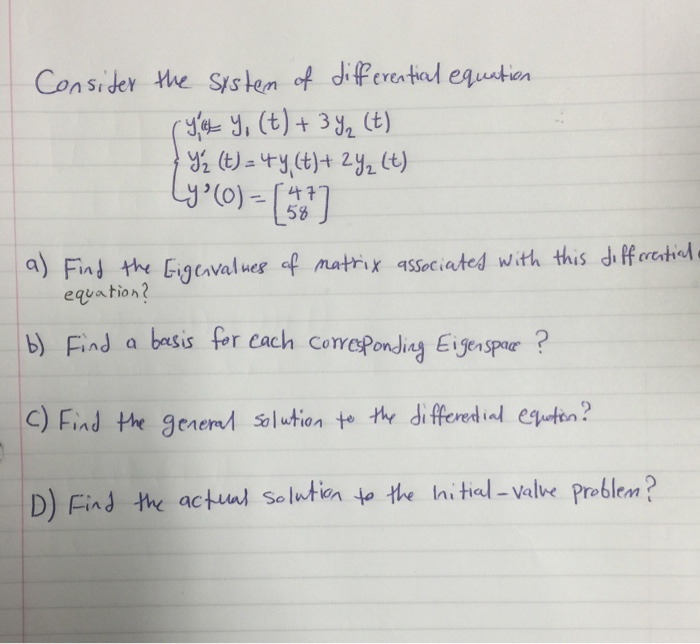 Consider the system of differential equation
y₁'(t) = y₁(t) + 3y₂(t)
y₂'(t) = 4y₁(t) + 2y₂(t)
y'(0) = [47
58]
a) Find the Eigenvalues of matrix associated with this differential
equation?
b) Find a basis for each corresponding Eigenspace ?
C) Find the general solution to the differential equation?
D) Find the actual solution to the initial-value problem?